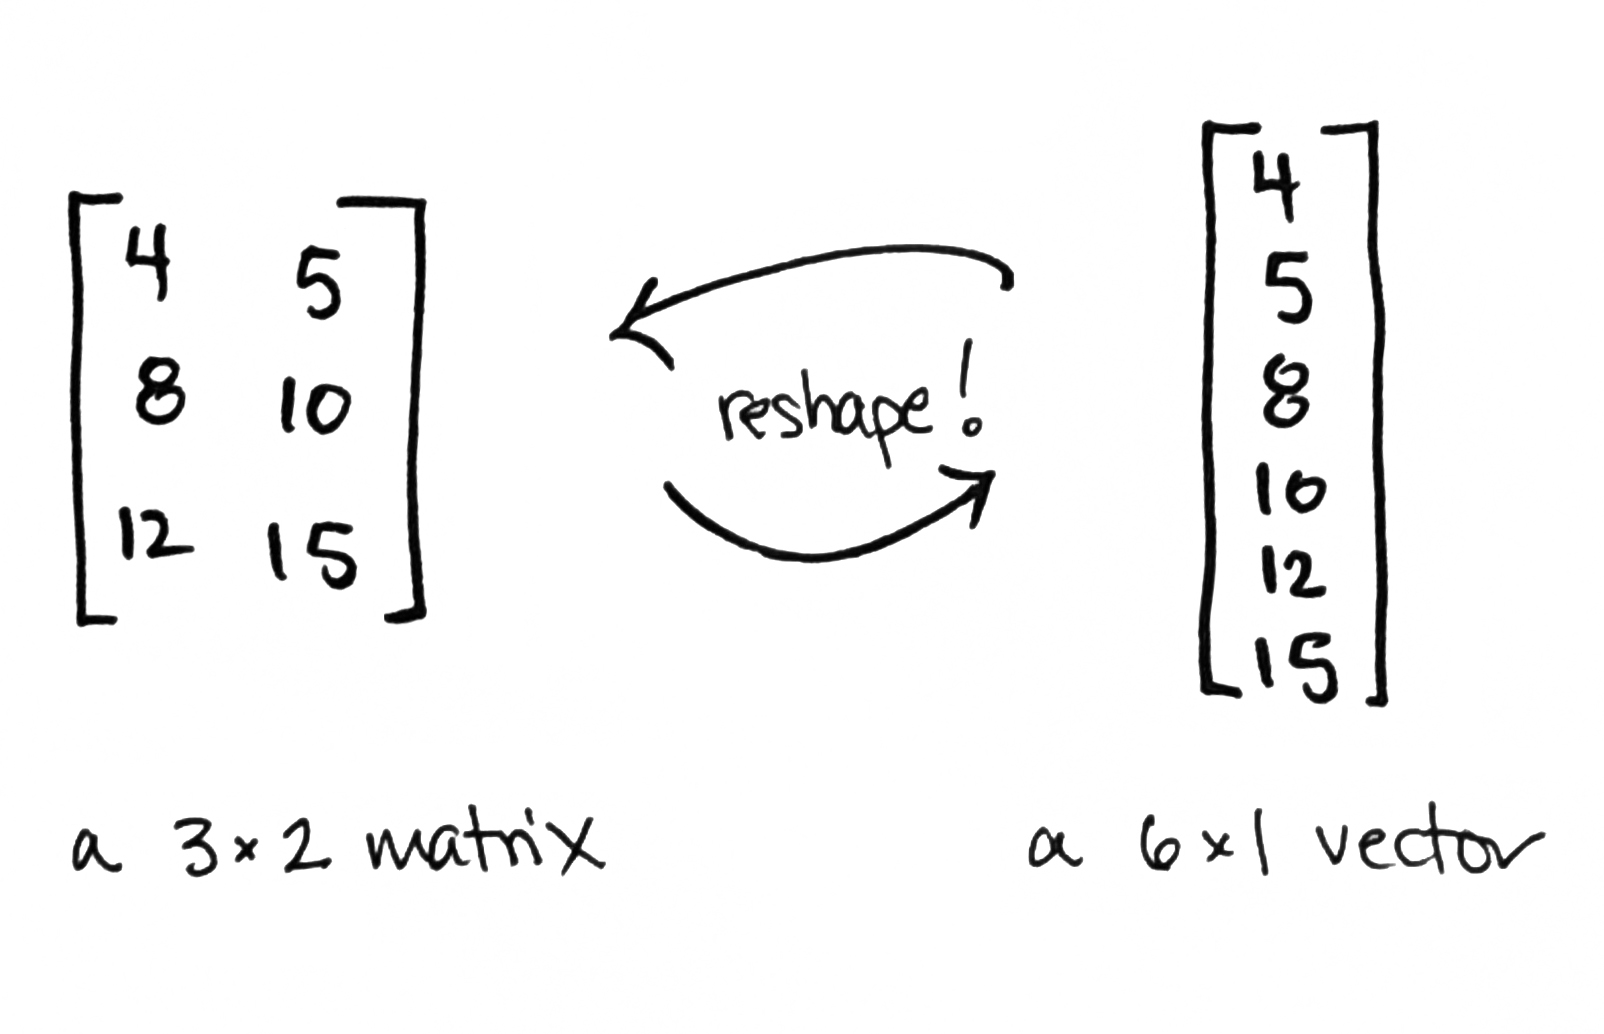 4 5
8 10
12 15
reshape!
4
5
8
10
12
15
a 3×2 matrix
a 6×1 vector